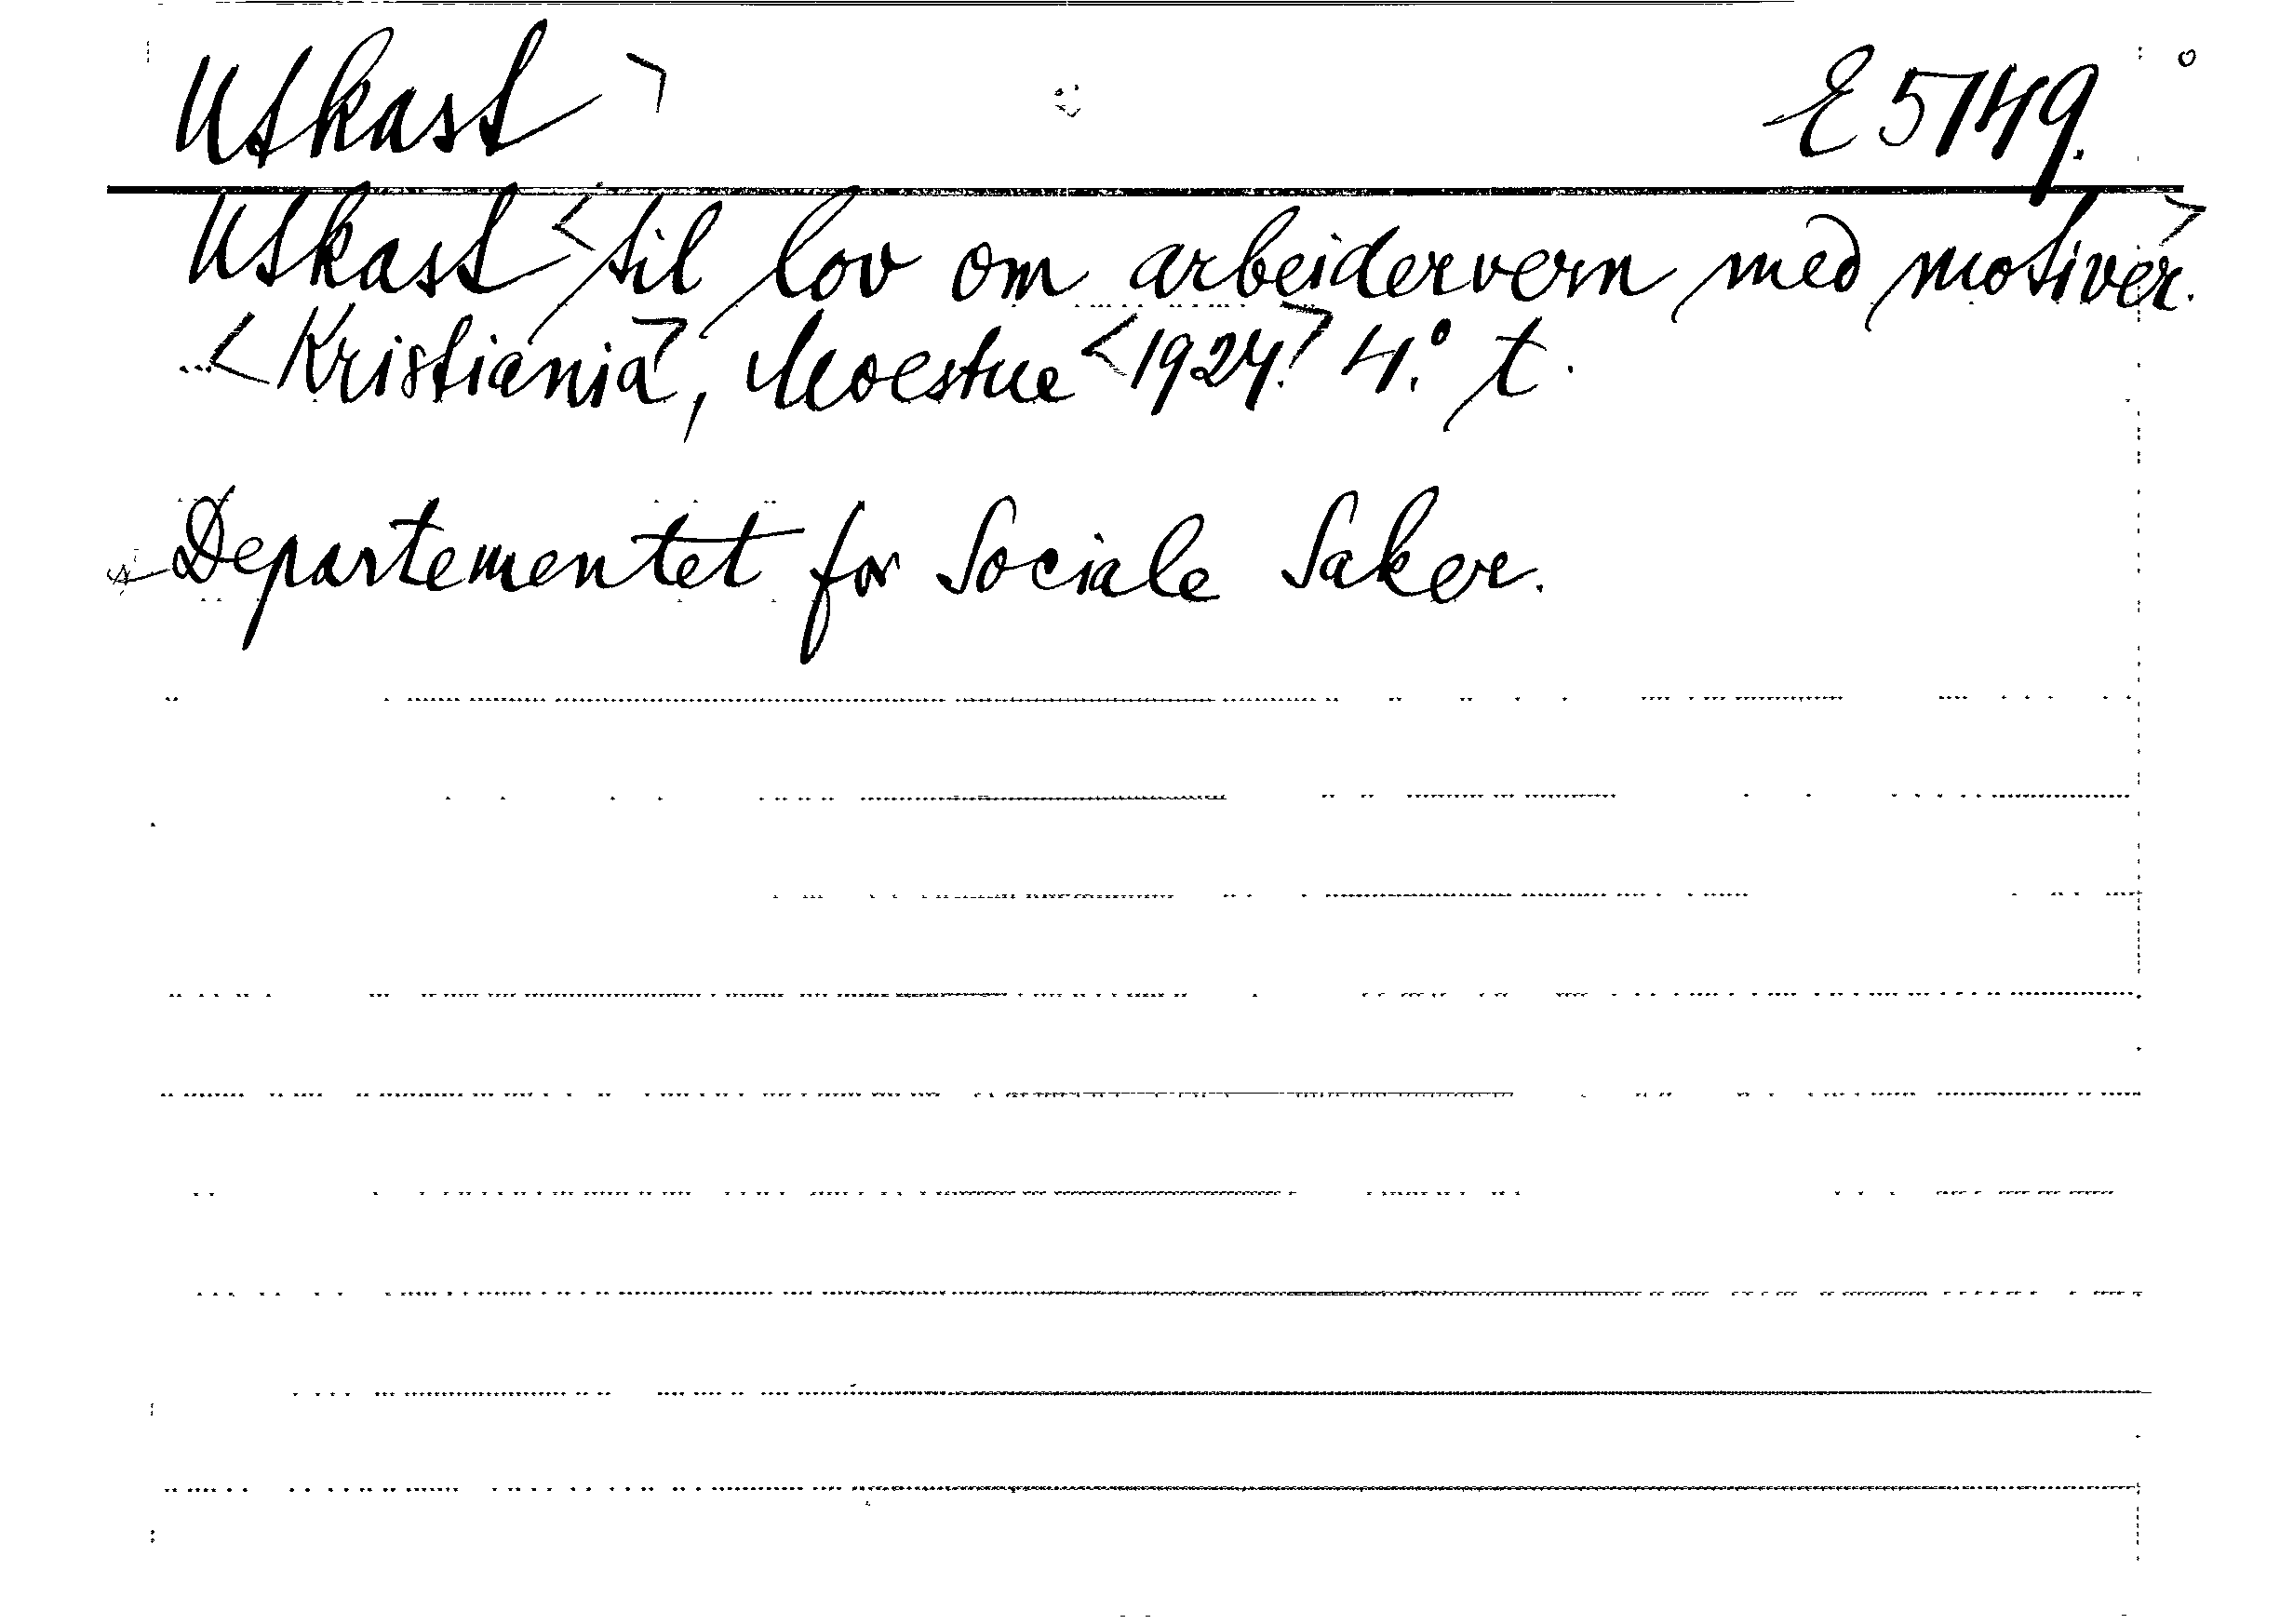 Utkast > E 5149.
Utkast < til lov om arbeidervern med motiver. >
< Kristiania >, Moestue < 1924. > 4.° t.
Departementet for Sociale Saker.